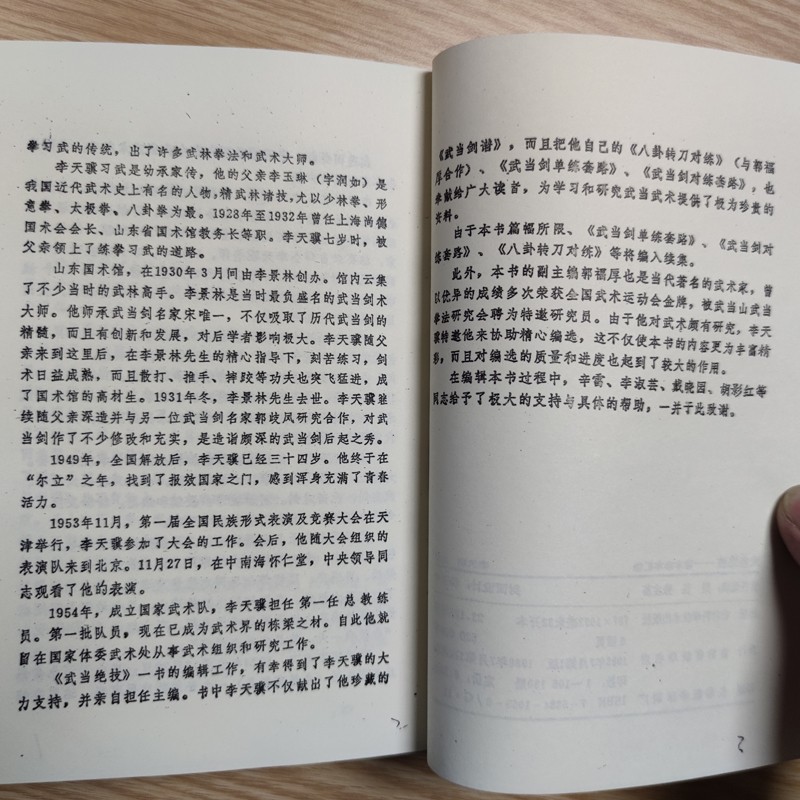 拳习武的传统，出了许多武林拳法和武术大师。
李天骥习武是幼承家传，他的父亲李玉琳（字润如）是
我国近代武术史上有名的人物，精武林诸技，尤以少林拳、形
意拳、太极拳、八卦拳为最。1928年至1932年曾任上海尚德
国术会会长、山东省国术馆教务长等职。李天骥七岁时，被
父亲领上了练拳习武的道路。
山东国术馆，在1930年3月间由李景林创办。馆内云集
了不少当时的武林高手。李景林是当时最负盛名的武当剑术
大师。他师承武当剑名家宋唯一，不仅吸取了历代武当剑的
精髓，而且有创新和发展，对后学者影响极大。李天骥随父
亲来到这里后，在李景林先生的精心指导下，刻苦练习，剑
术日益成熟，而且散打、推手、摔跤等功夫也突飞猛进，成
了国术馆的高材生。1931年冬，李景林先生去世。李天骥继
续随父亲深造并与另一位武当剑名家郭歧凤研究合作，对武
当剑作了不少修改和充实，是造诣颇深的武当剑后起之秀。
1949年，全国解放后，李天骥已经三十四岁。他终于在
“尔立”之年，找到了报效国家之门，感到浑身充满了青春
活力。
1953年11月，第一届全国民族形式表演及竞赛大会在天
津举行，李天骥参加了大会的工作。会后，他随大会组织的
表演队来到北京。11月27日，在中南海怀仁堂，中央领导同
志观看了他的表演。
1954年，成立国家武术队，李天骥担任第一任总教练
员。第一批队员，现在已成为武术界的栋梁之材。自此他就
留在国家体委武术处从事武术组织和研究工作。
《武当绝技》一书的编辑工作，有幸得到了李天骥的大
力支持，并亲自担任主编。书中李天骥不仅献出了他珍藏的
2
《武当剑谱》，而且把他自己的《八卦转刀对练》（与郭福
厚合作）、《武当剑单练套路》、《武当剑对练套路》，也
奉献给广大读者，为学习和研究武当武术提供了极为珍贵的
资料。
由于本书篇幅所限、《武当剑单练套路》、《武当剑对
练套路》、《八卦转刀对练》等将编入续集。
此外，本书的副主编郭福厚也是当代著名的武术家，曾
以优异的成绩多次荣获全国武术运动会金牌，被武当山武当
拳法研究会聘为特邀研究员。由于他对武术颇有研究，李天
骥特邀他来协助精心编选，这不仅使本书的内容更为丰富精
彩，而且对编选的质量和进度也起到了较大的作用。
在编辑本书过程中，辛雷、李淑芸、戴晓园、胡彩红等
同志给予了极大的支持与具体的帮助，一并于此致谢。
2